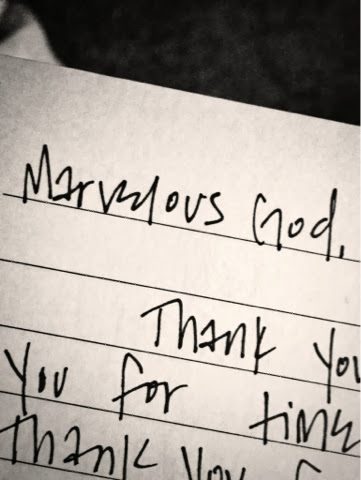 Marvelous God,
Thank You
You for time
Thank You